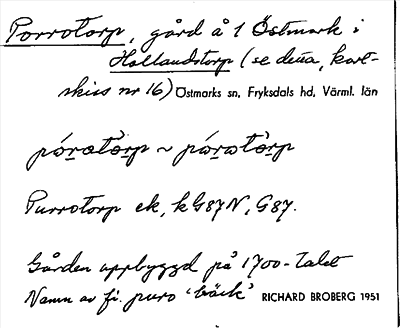 Porrotorp, gård å 1 Östmark i
Hollandstorp (se detta, kart-
skiss nr 16) Östmarks sn, Fryksdals hd, Värml. län
Purrotorp ek, kG87N, G87.
Gården uppbyggd på 1700-talet
Namn av fi. puro 'bäck' RICHARD BROBERG 1951